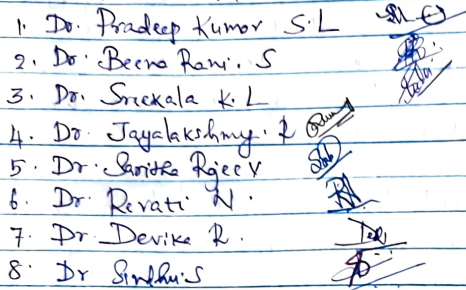 1. Dr. Pradeep Kumar S.L
2. Dr. Beena Rani. S
3. Dr. Sreekala K.L
4. Dr. Jayalakshmy. R
5. Dr. Saritha Rajeev
6. Dr. Revati N.
7. Dr Devika R.
8. Dr Sindhu.S